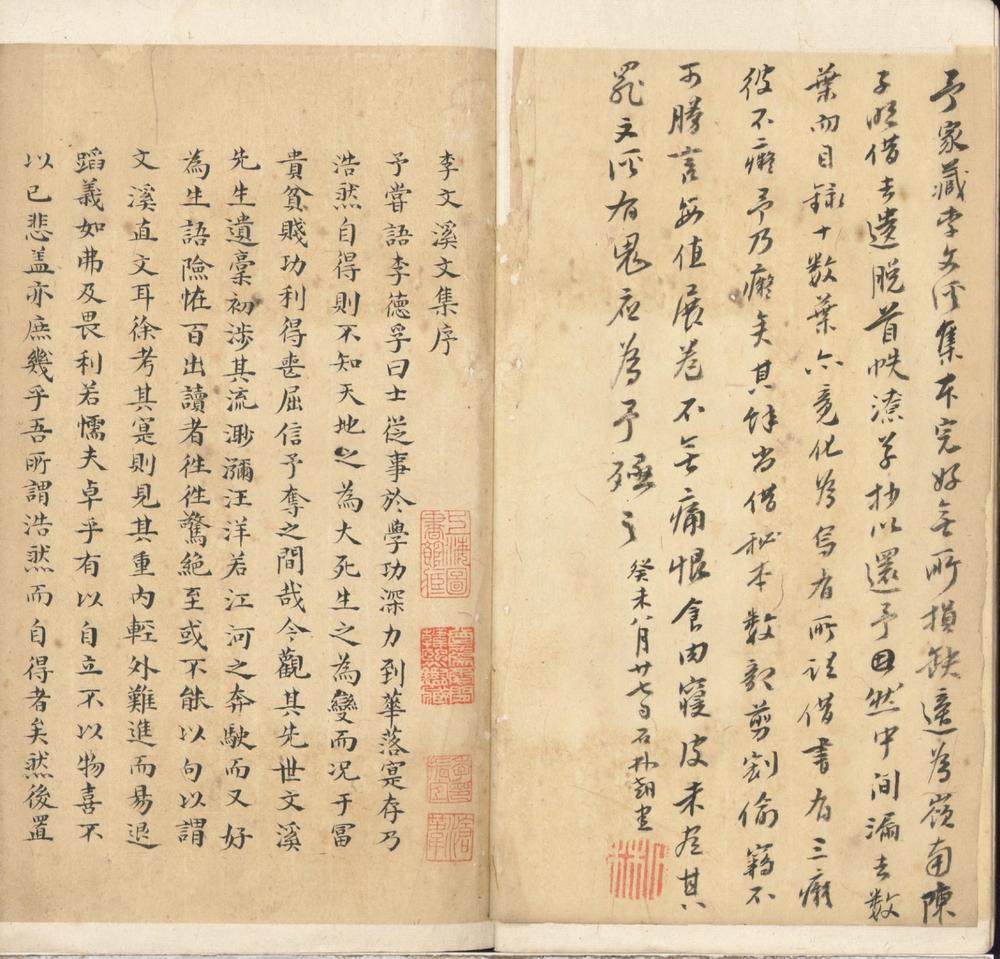 予家藏李文溪集本完好無所損缺適為嶺南陳
子明借去遺脫首帙潦草抄以還予然中间漏去数
葉而目録十数葉亦竟化為烏有所謂借書有三癡
彼不癡予乃癡矣其餘尚借秘本數部剪割偷竊不
可勝言每值展卷不無痛恨食肉寢皮未足其
罪文溪有鬼應為予殛之 癸未八月廿七日石朴書
上海圖書館藏
李文溪文集序
予嘗語李德孚曰士從事於學功深力到華落寔存乃
浩然自得則不知天地之為大死生之為變而况于冨
貴貧賤功利得喪屈信予奪之間哉今觀其先世文溪
先生遺稾初涉其流渺瀰汪洋若江河之奔駛而又好
為生語險恠百出讀者徃徃驚絕至或不能以句以謂
文溪直文耳徐考其寔則見其重內輕外難進而易退
蹈義如弗及畏利若懦夫卓乎有以自立不以物喜不
以已悲盖亦庶幾乎吾所謂浩然而自得者矣然後置